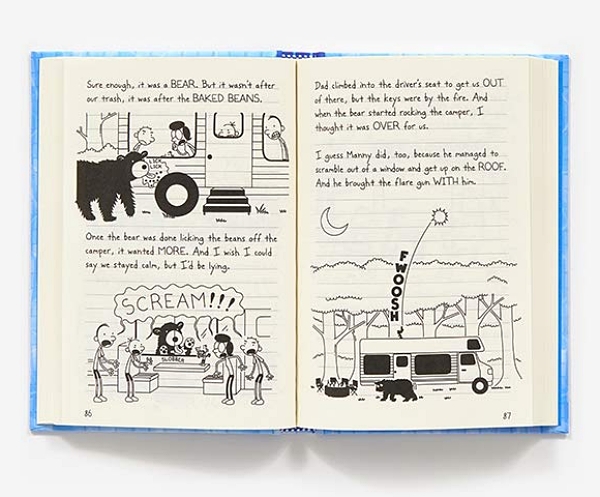 Sure enough, it was a BEAR. But it wasn't after
our trash, it was after the BAKED BEANS.
LICK
LICK
Once the bear was done licking the beans off the
camper, it wanted MORE. And I wish I could
say we stayed calm, but I'd be lying.
SCREAM!!!
SLOBBER
86
Dad climbed into the driver's seat to get us OUT
of there, but the keys were by the fire. And
when the bear started rocking the camper, I
thought it was OVER for us.
I guess Manny did, too, because he managed to
scramble out of a window and get up on the ROOF.
And he brought the flare gun WITH him.
FWOOSH
87